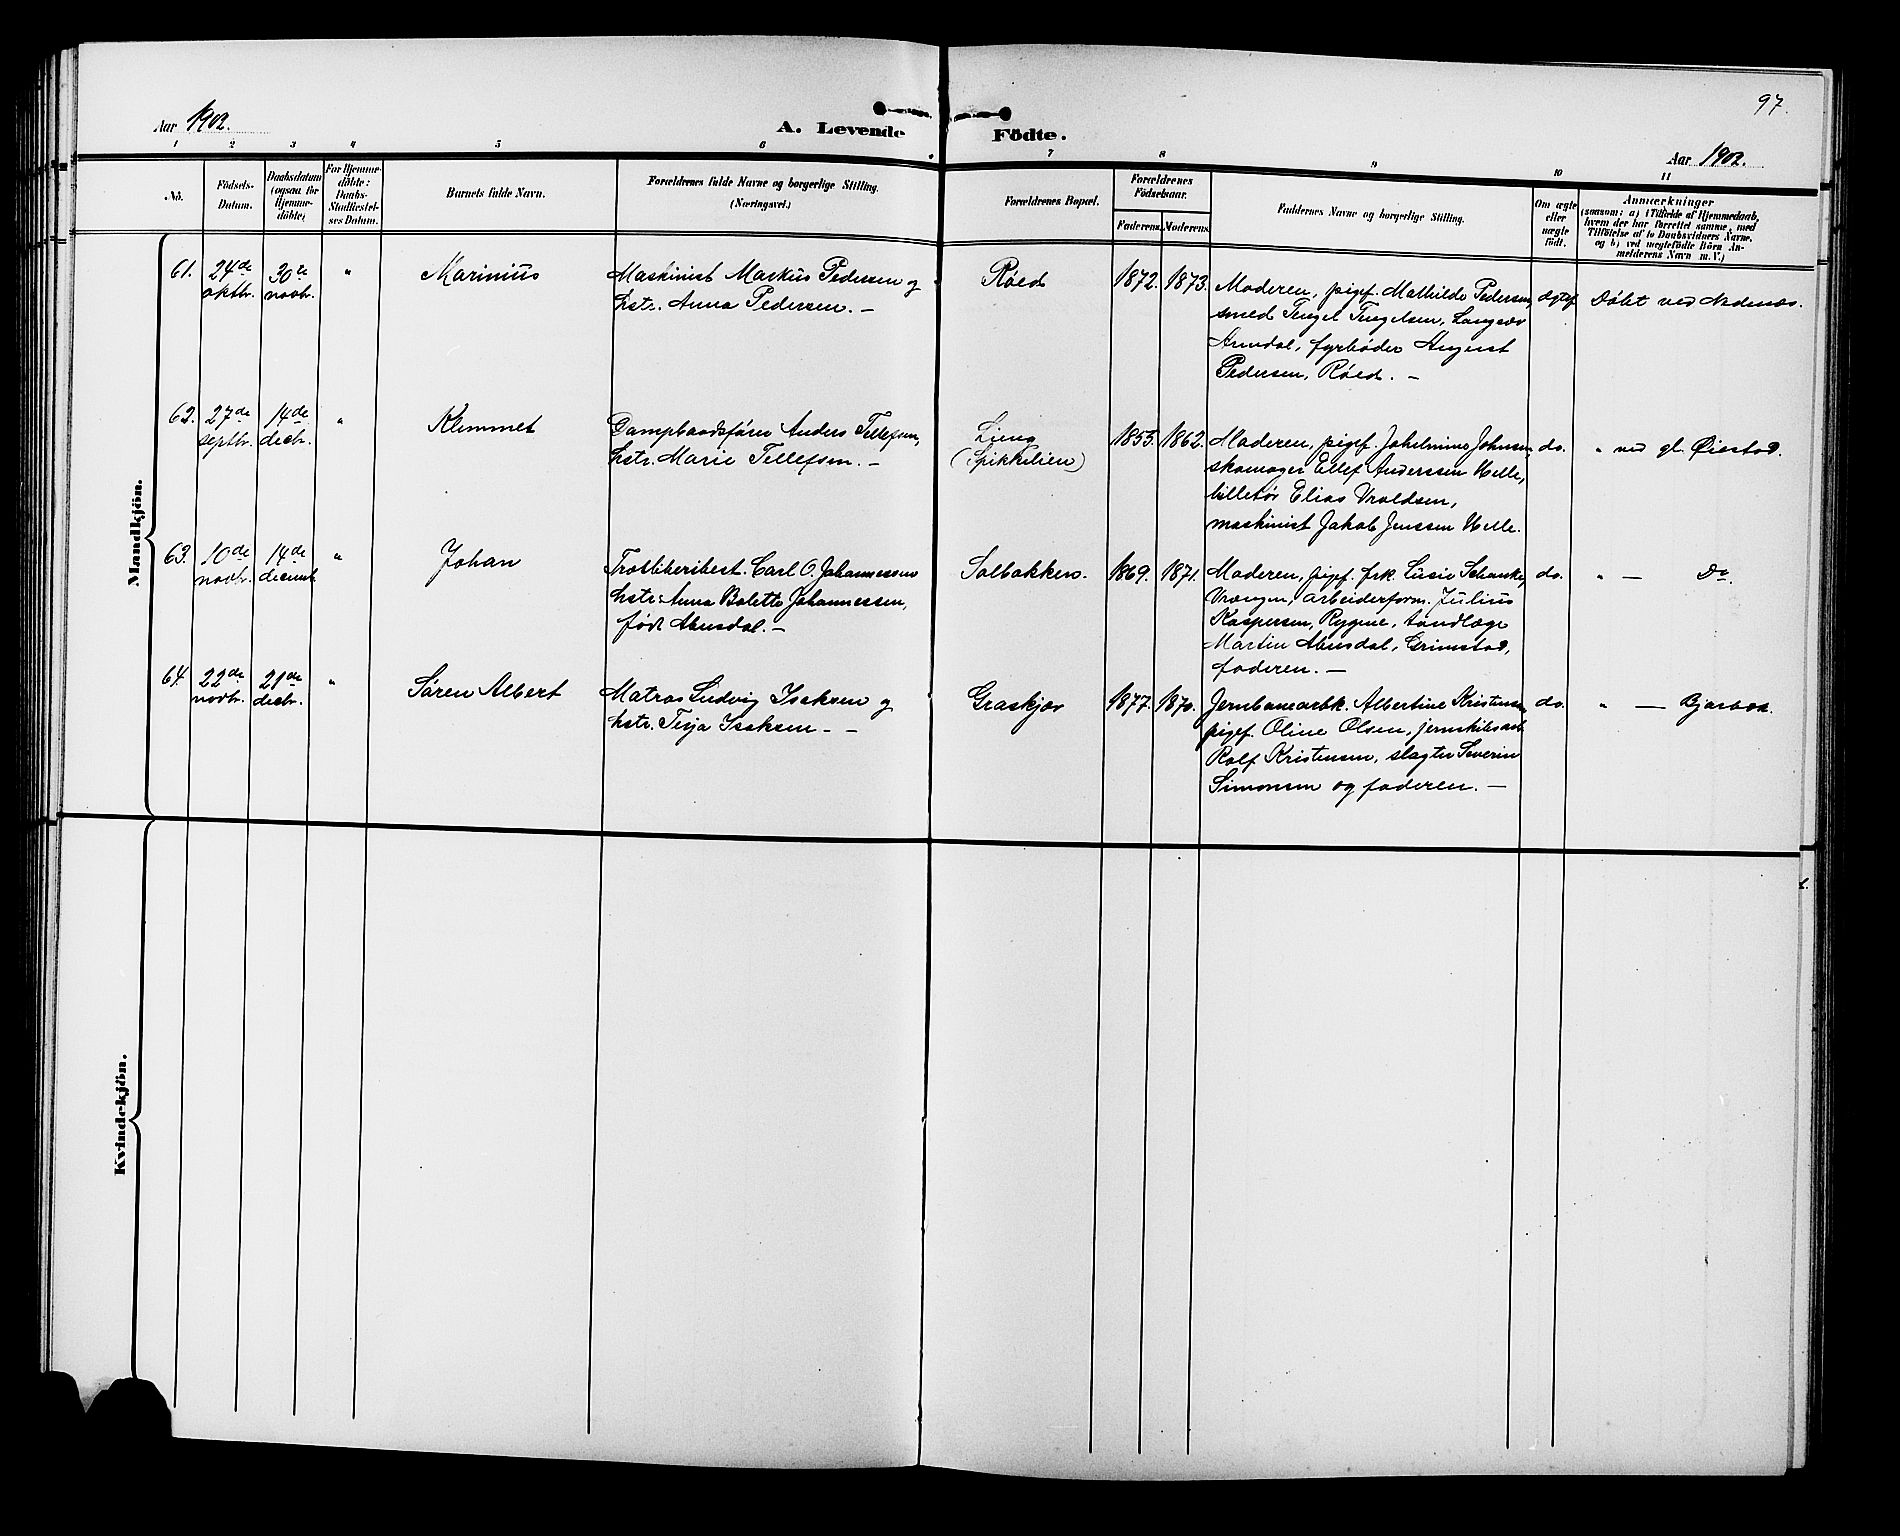 97.
Aar 1902.
A. Levende Födte.
Aar 1902.
1 2 3 4 5 6 7 8 9 10 11
No.
Födsels-
Datum.
Daabsdatum
(ogsaa for
Hjemme-
döbte)
For Hjemme-
döbte:
Daabs-
Stadfæstel-
ses Datum.
Barnets fulde Navn.
Forældrenes fulde Navne og borgerlige Stilling.
(Næringsvei.)
Forældrenes Bopæl.
Forældrenes
Födselsaar.
Faderens. Moderens.
Faddernes Navne og borgerlige Stilling.
Om ægte
eller
uægte
födt.
Anmærkninger
(saasom: a) i Tilfælde af Hjemmedaab,
hvem der har forrettet samme, med
Tilföielse af to Daabsvidners Navne,
og b) ved uægtefödte Börn An-
melderens Navn m. V.)
Mandkjön.
61.
24de
oktbr.
30te
novbr.
"
Marinius
Maskinist Markus Pedersen og
hstr. Anna Pedersen. —
Röed
1872. 1873.
Moderen, pigef. Mathilde Pedersen,
smed Tengel Tengelsen, Langsæv
Arendal, fyrböder August
Pedersen, Röed. —
ægtef.
Döbt ved Nedenæs.
62.
27de
septbr.
14de
decbr.
"
Klemmet
Dampbaadsförer Anders Tellefsen,
hstr. Marie Tellefsen. —
Liene
(Spikkelien)
1855. 1862.
Moderen, pigef. Johelmine Johnsen,
skomager Ellef Anderssen Helle,
billetör Elias Vraldsen,
maskinist Jakob Jenssen Helle.
do.
" ved gl. Øiestad.
63.
10de
novbr.
14de
decemb.
"
Johan
Træsliberibest. Carl O. Johannessen
hstr. Anna Bolette Johannessen,
född Abusdal. —
Solbakken.
1869. 1871.
Moderen, pigef. frk. Lusie Schanke,
Vrængen, arbeiderform. Julius
Kaspersen, Rygene, tandlæge
Martin Abusdal, Grimstad,
faderen. —
do.
" — Do.
64.
22de
novbr.
21de
decbr.
"
Sören Albert
Matros Ludvig Isaksen og
hstr. Terja Isaksen — —
Graskjær
1877. 1870.
Jernbanearbk. Albertine Kristensen,
pigef. Oline Olsen, jernskibsarb.
Rolf Kristensen, slagter Severin
Simonsen og faderen. —
do.
" — Bjorbæk.
Kvindekjön.